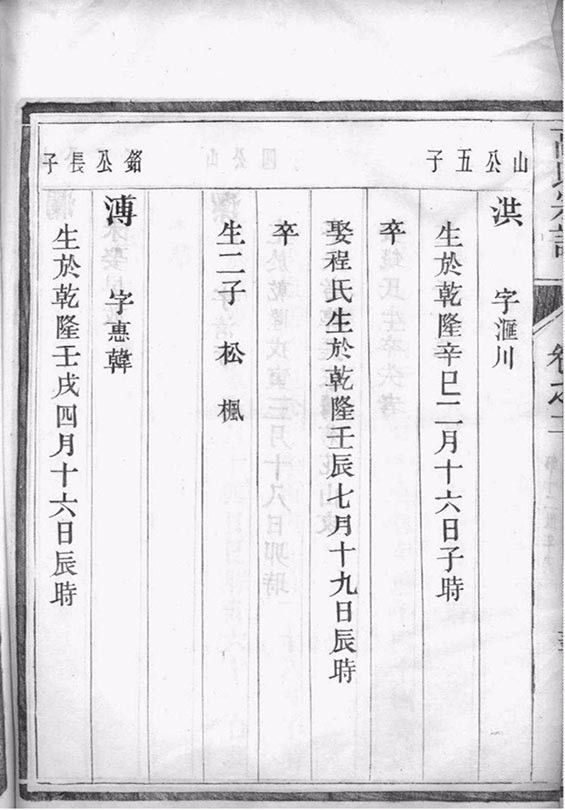 卷之二
山公五子
洪 字滙川
生於乾隆辛巳二月十六日子時
卒
娶程氏生於乾隆壬辰七月十九日辰時
卒
生二子 松 楓
銘公長子
溥 字惠韓
生於乾隆壬戌四月十六日辰時